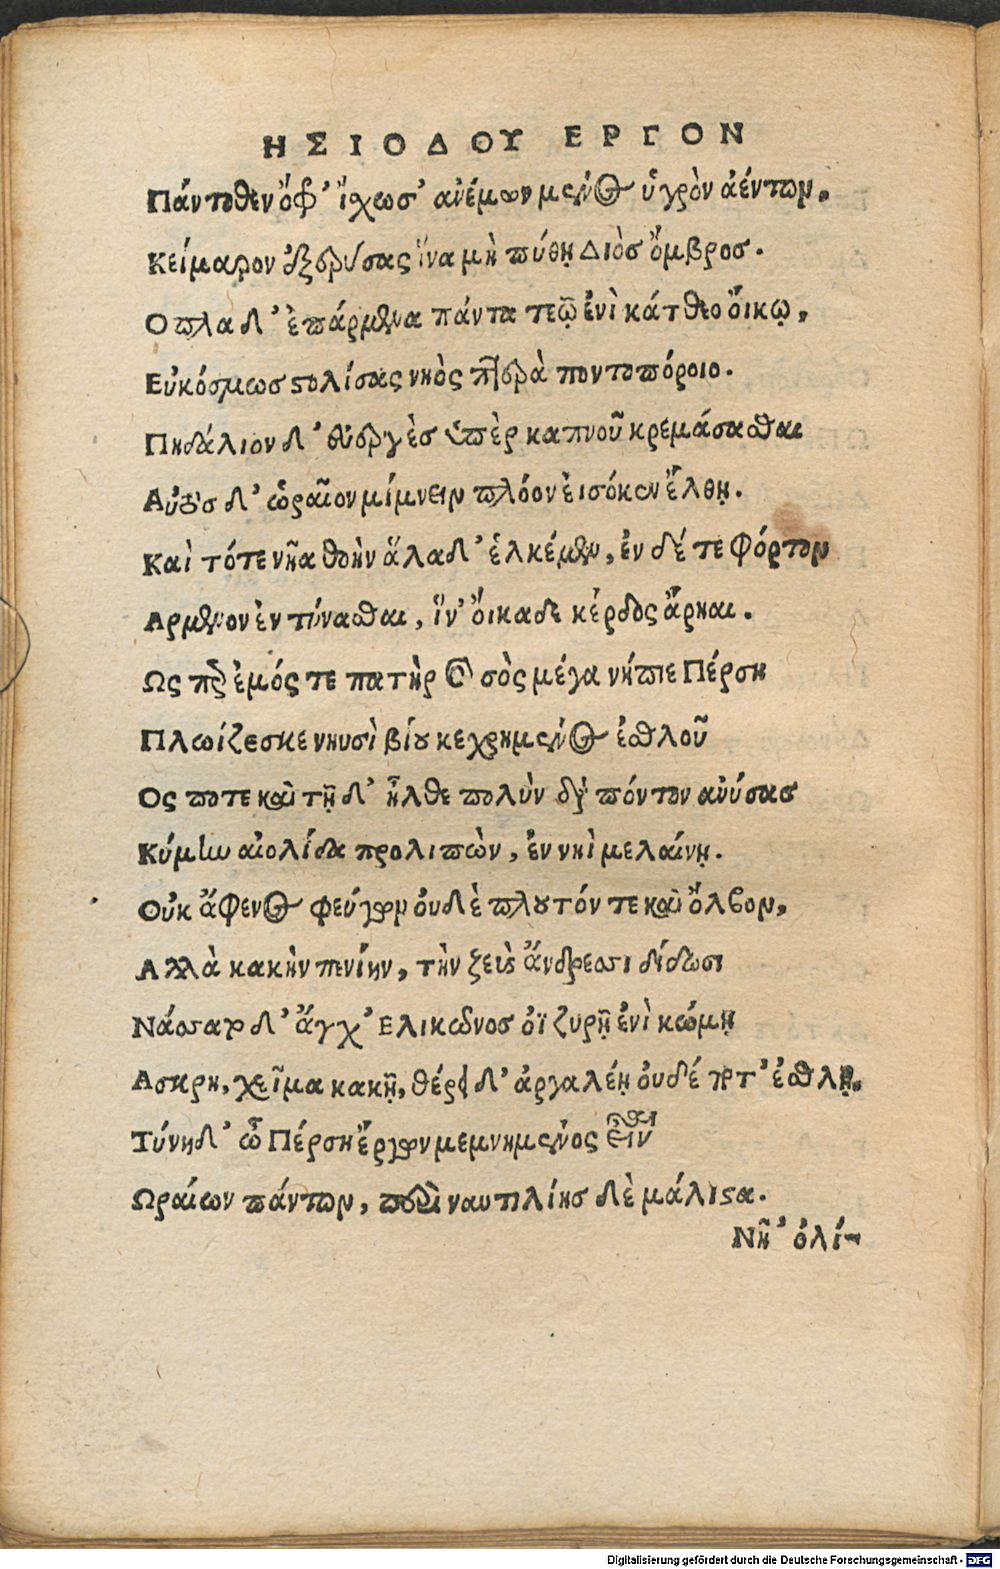 ΗΣΙΟΔΟΥ ΕΡΓΟΝ
Πάντοθεν ὄφρ' ἴχωσ' ἀνέμων μένος ὑγρὸν ἀέντων,
Κείμαρον ἐξερύσας ἵνα μὴ πύθῃ Διὸς ὄμβρος.
Οπλα δ' ἐπάρμενα πάντα τεῷ ἐνὶ κάτθεο ὄικῳ,
Εὐκόσμως στολίσας νηὸς πτερὰ ποντοπόροιο.
Πηδάλιον δ' ἐυεργὲς ὑπὲρ καπνοῦ κρεμάσασθαι
Αὐτὸς δ' ὡραῖον μίμνειν πλόον ἐισόκεν ἔλθῃ.
Καὶ τότε νῆα θοὴν ἅλαδ' ἑλκέμεν, ἐν δέ τε φόρτον
Αρμενον ἐντύνασθαι, ἵν' ὄικαδε κέρδος ἄρηαι.
Ως περ ἐμός τε πατὴρ καὶ σὸς μέγα νήπιε Πέρση
Πλωίζεσκε νηυσὶ βίου κεχρημένος ἐσθλοῦ
Ος ποτε καὶ τῇδ' ἦλθε πολὺν διὰ πόντον ἀνύσας
Κύμην αἰολίδα προλιπὼν, ἐν νηὶ μελαίνῃ.
Οὐκ ἄφενος φεύγων ὀυδὲ πλουτόν τε καὶ ὄλβον,
Αλλὰ κακὴν πενίην, τὴν ζεὺς ἄνδρεσσι δίδωσι
Νάσσατο δ' ἄγχ' Ελικῶνος ὀϊζυρῇ ἐνὶ κώμῃ
Ασκρῃ, χεῖμα κακῇ, θέρει δ' ἀργαλέῃ ὀυδέ ποτ' ἐσθλῇ.
Τύνη δ' ὦ Πέρση ἔργων μεμνημένος εἶναι
Ωραίων πάντων, περὶ ναυτιλίης δὲ μάλιστα.
Νῆ' ὀλί-
Digitalisierung gefördert durch die Deutsche Forschungsgemeinschaft - DFG